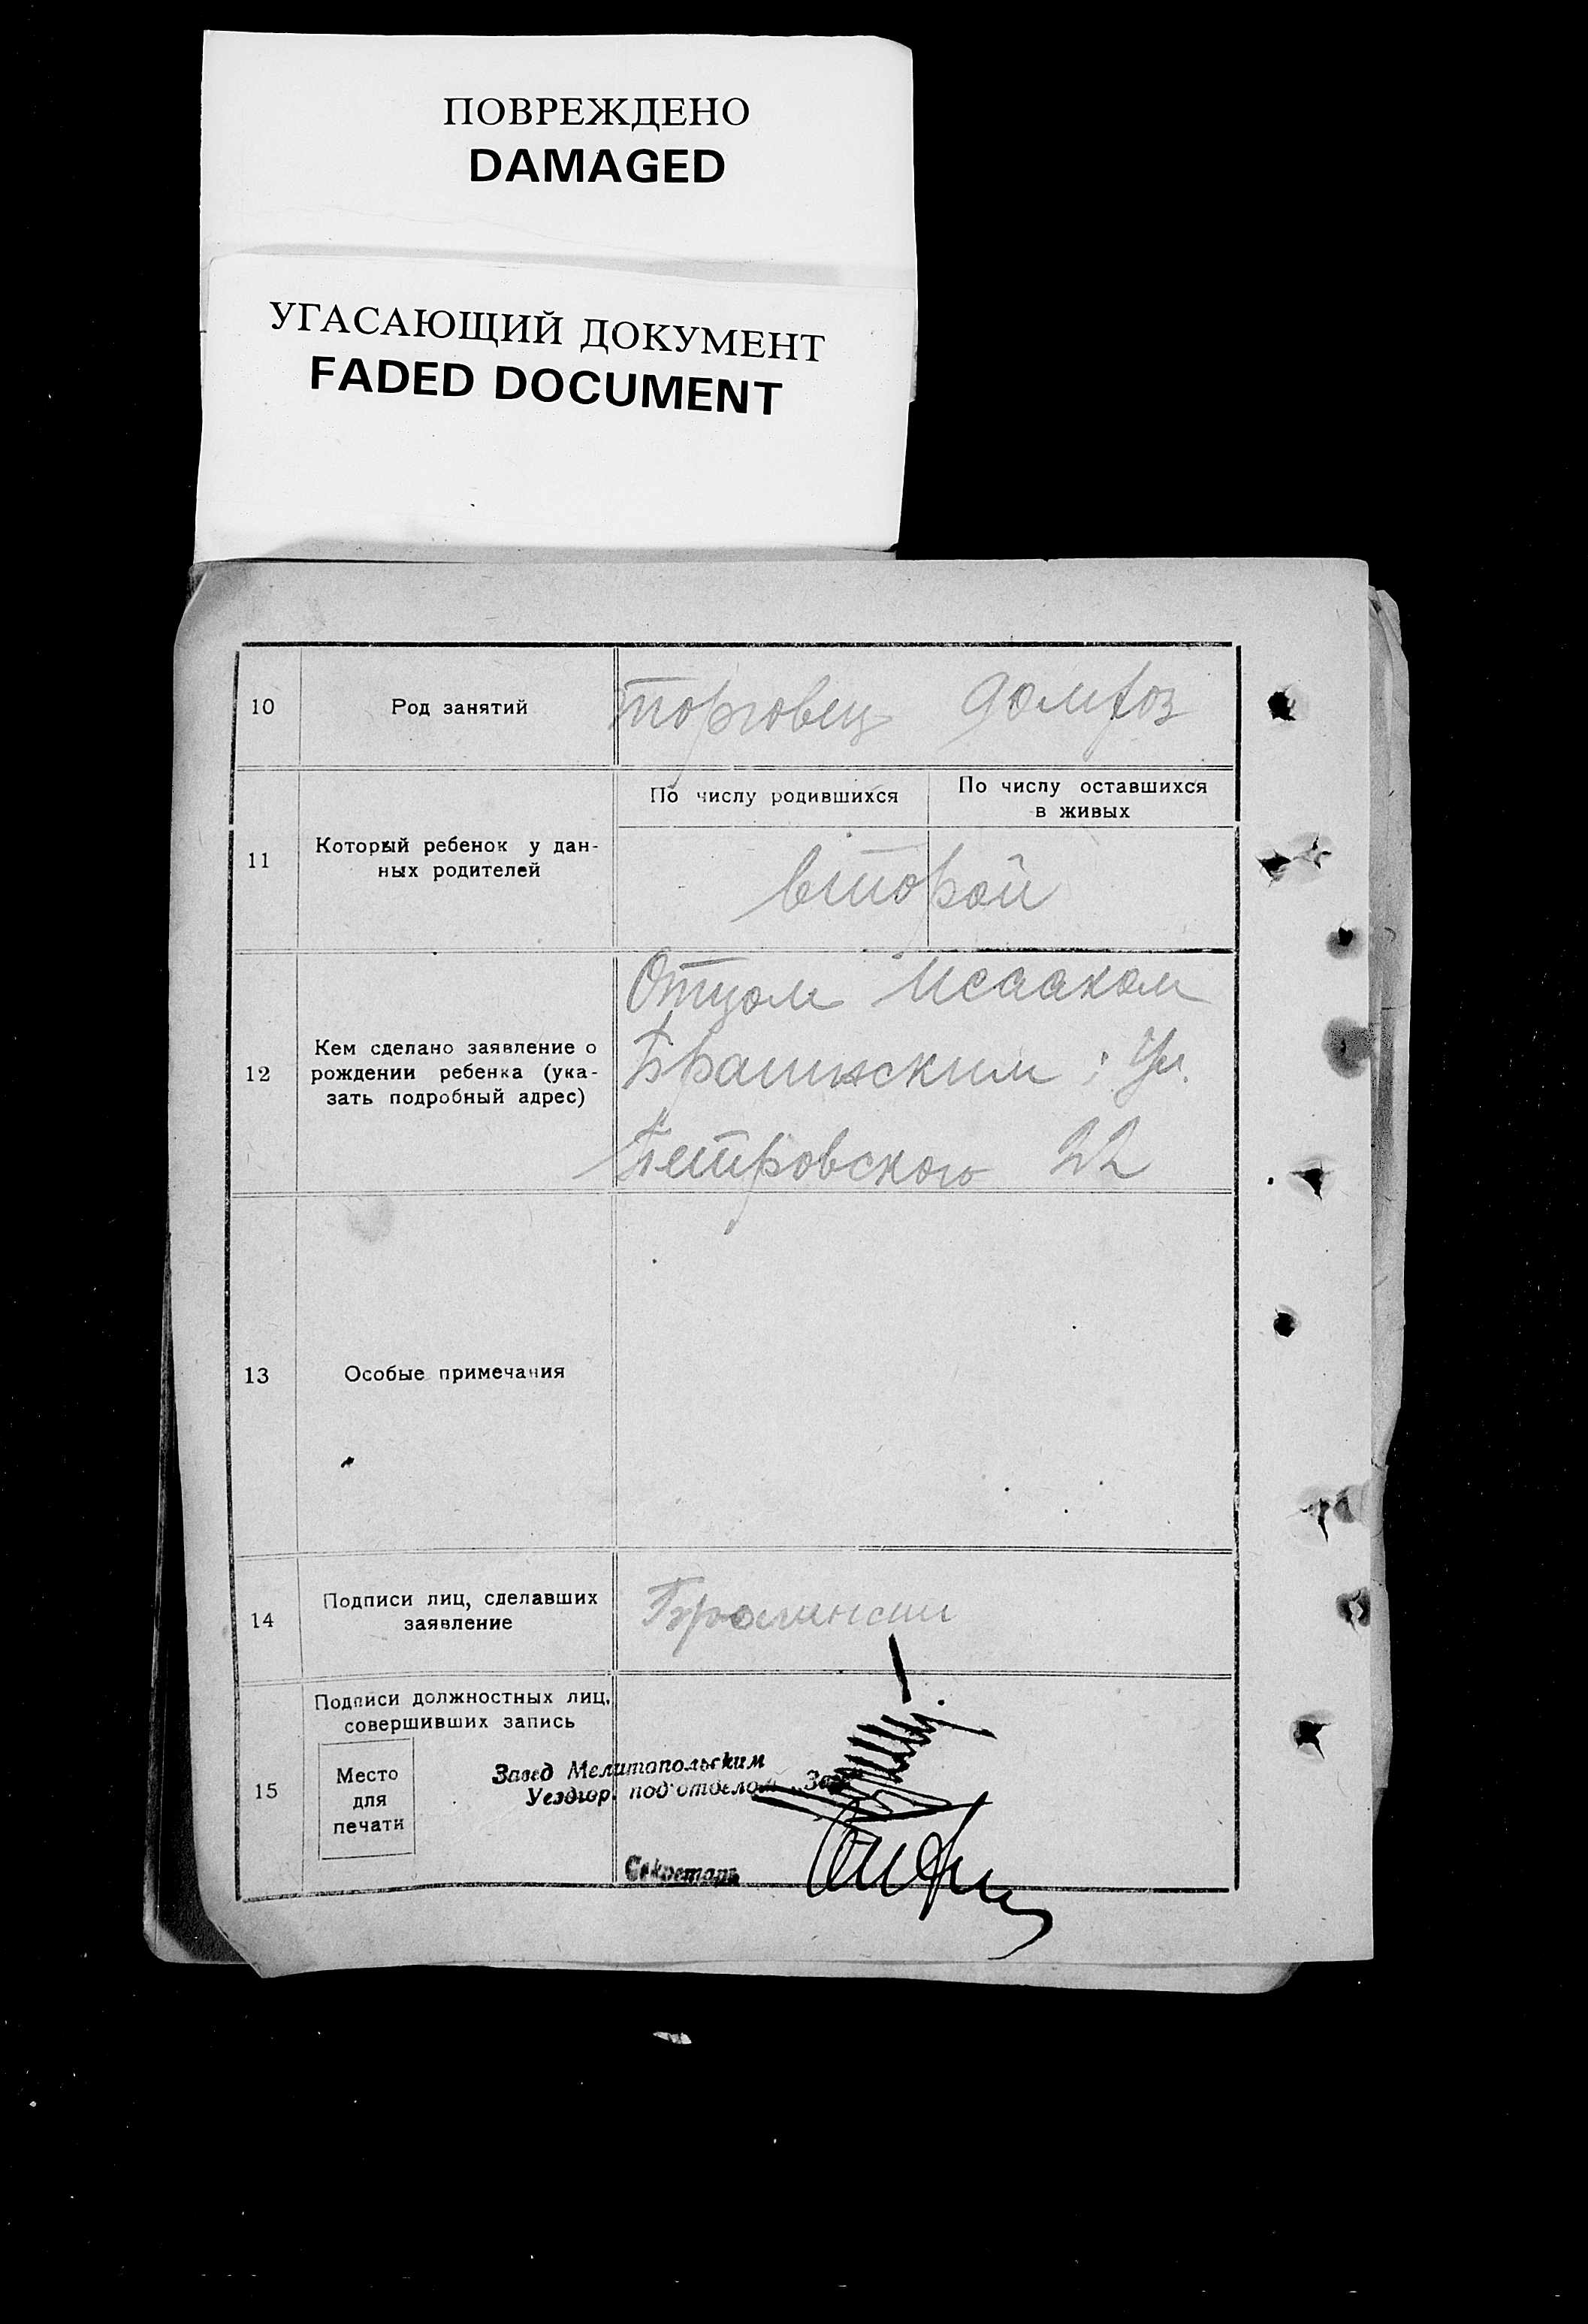 ПОВРЕЖДЕНО
DAMAGED
УГАСАЮЩИЙ ДОКУМЕНТ
FADED DOCUMENT
10
Род занятий
торговец домхоз
11
Который ребенок у дан-
ных родителей
По числу родившихся
По числу оставшихся
в живых
второй
12
Кем сделано заявление о
рождении ребенка (ука-
зать подробный адрес)
Отцом Исааком
Ул.
Петровского 22
13
Особые примечания
14
Подписи лиц, сделавших
заявление
15
Подписи должностных лиц,
совершивших запись
Место
для
печати
Завед Мелитопольским
Уездгор. под'отделом
Секретарь